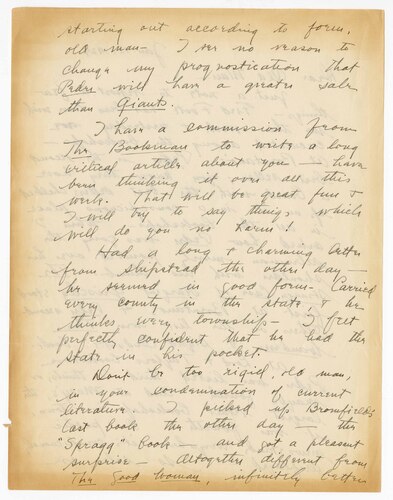 starting out according to form,
old man - I see no reason to
change my prognostication that
Peder will have a greater sale
than Giants.
I have a commission from
The Bookman to write a long
critical article about you - have
been thinking it over all this
week. That will be great fun &
I will try to say things which
will do you no harm!
Had a long & charming letter
from Shipstead the other day -
he seemed in good form - Carried
every county in the state & he
thinks every township - I felt
perfectly confident that he had the
state in his pocket.
Don't be too rigid, old man,
in your condemnation of current
literature. I picked up Bromfield's
last book the other day - the
"Spragg" book - and got a pleasant
surprise - altogether different from
The Good Woman, infinitely better